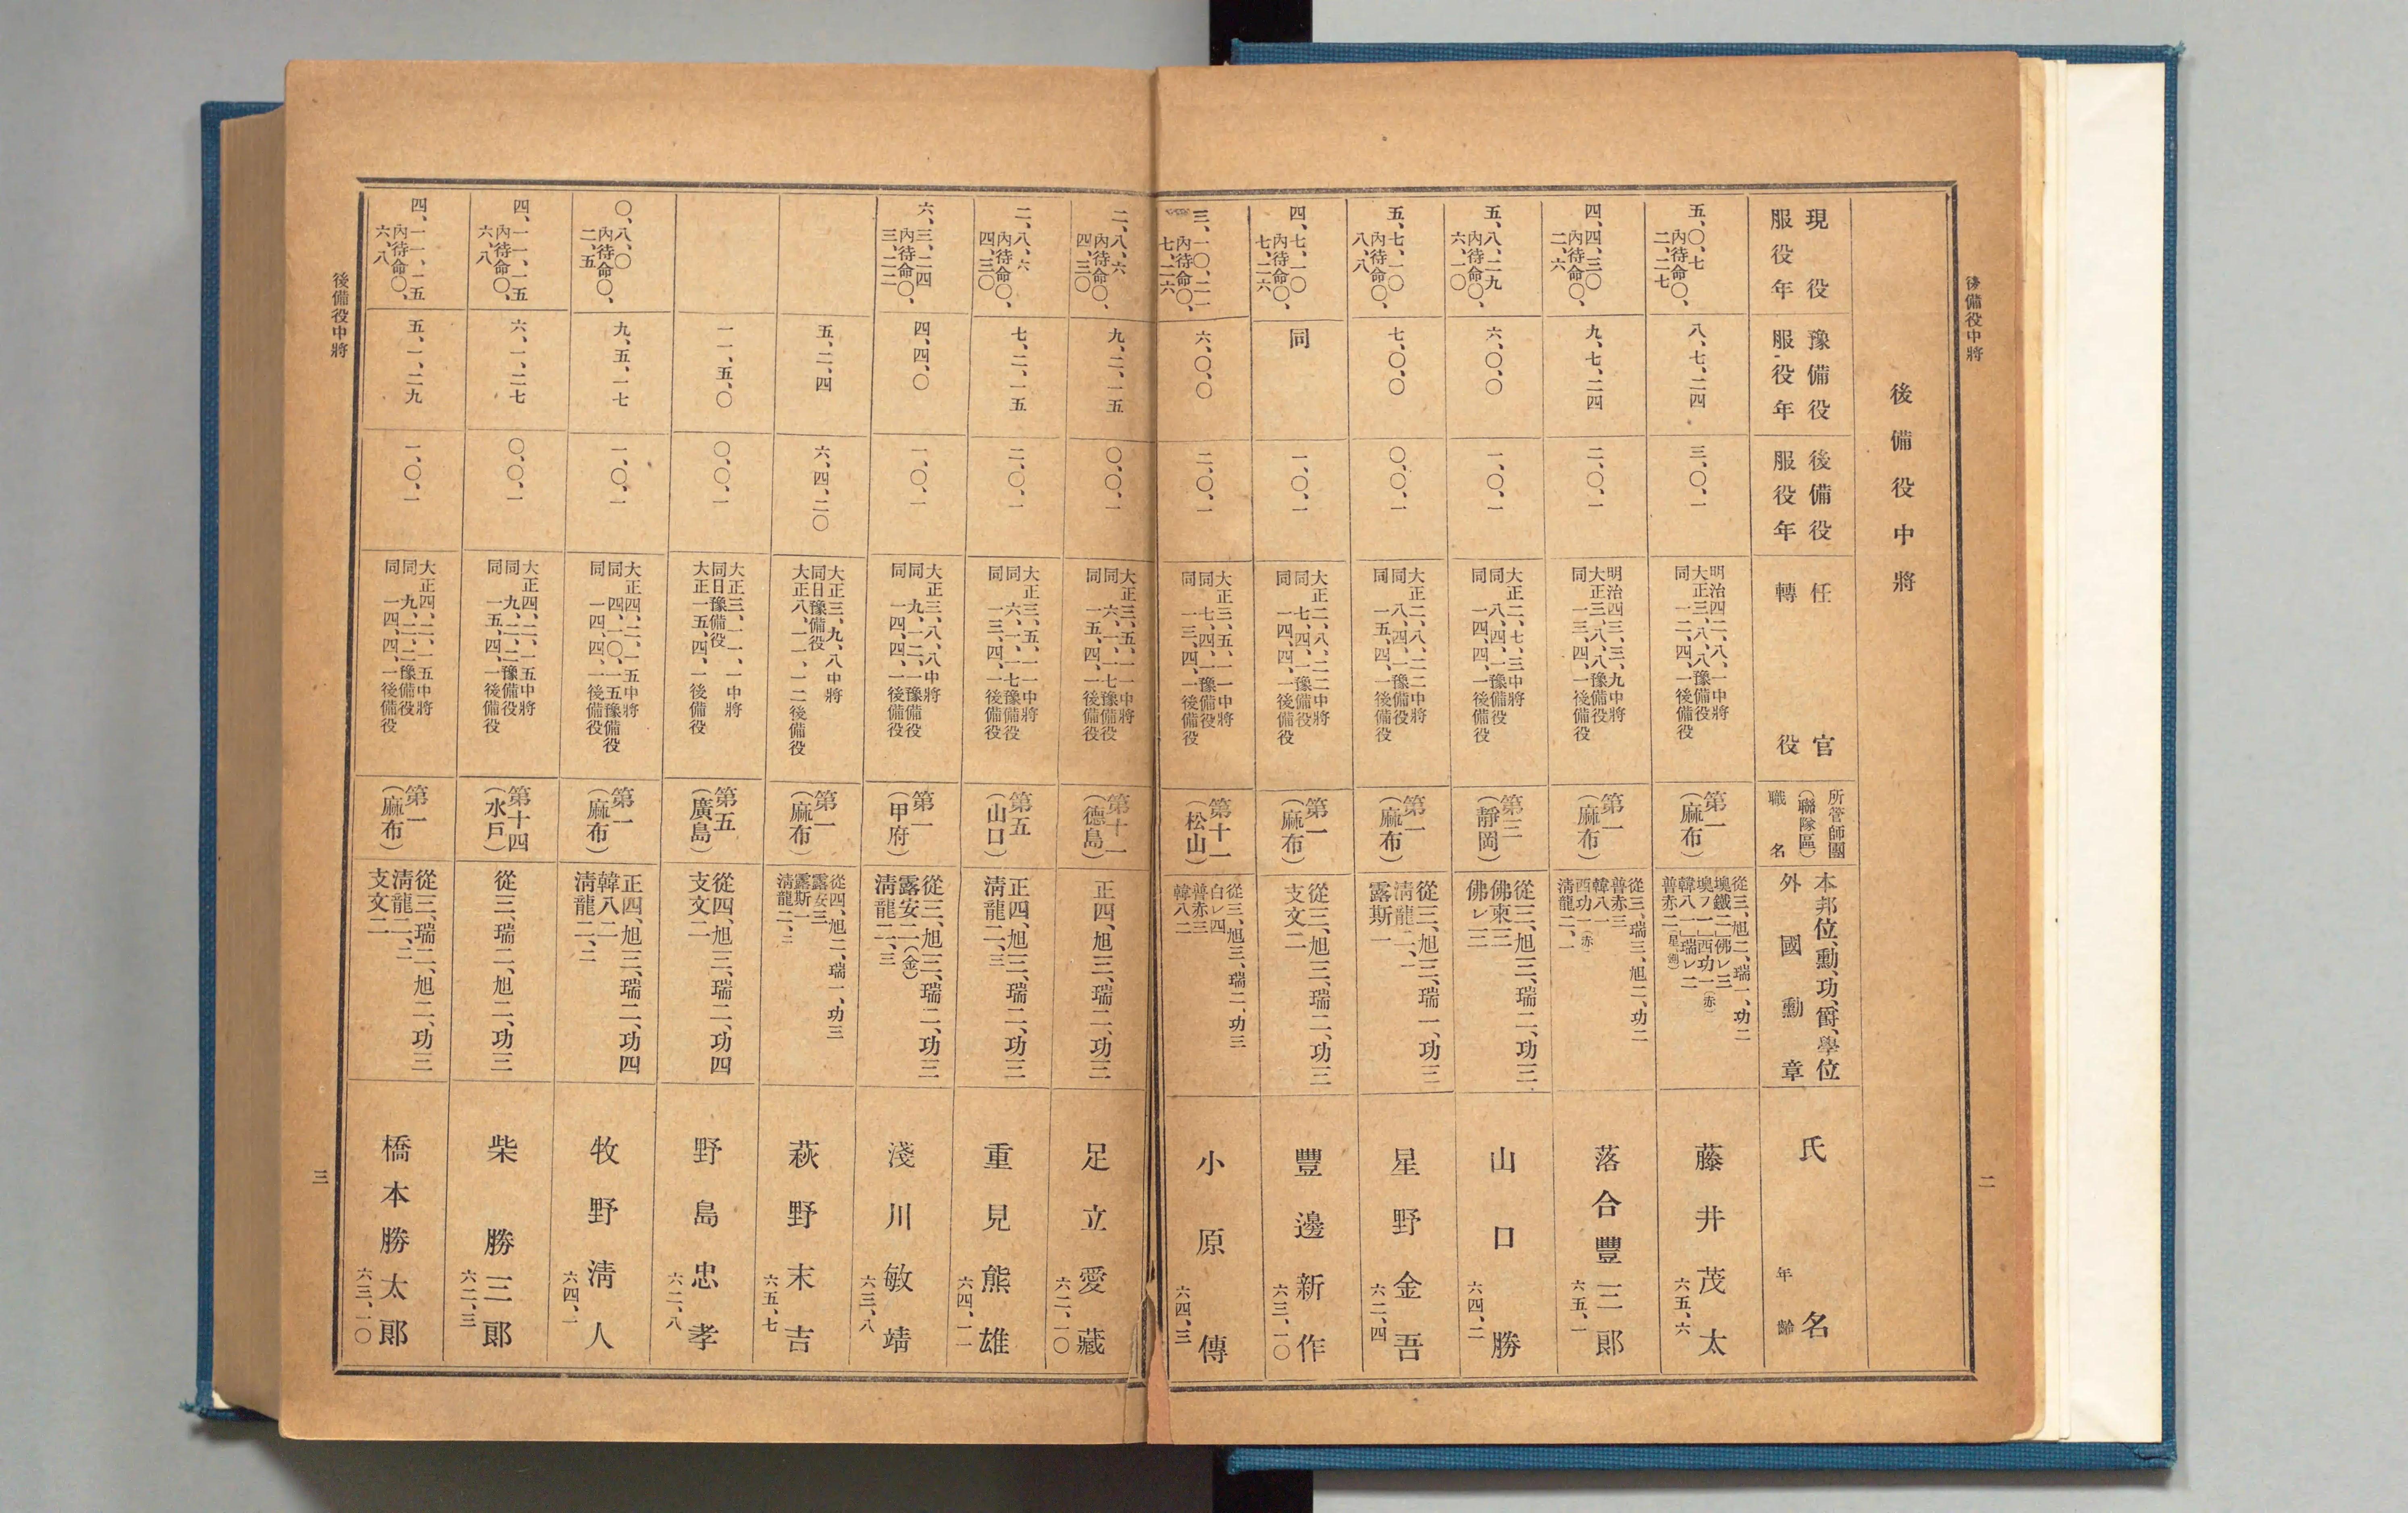 後備役中將
二
後備役中將
現役
服役年
豫備役
服役年
後備役
服役年
任官
轉役
所管師團
(聯隊區)
職名
本邦位、勳、功、爵、學位
外國勳章
氏名
年齡
五、〇、七
內待命〇、
二、二七
八、七、二四
三、〇、一
明治四二、八、一中將
大正三、八、八豫備役
同一二、四、一後備役
第一
(麻布)
從三、旭二、瑞一、功二
墺鐵二」佛レ三
墺フ一」西功一(赤)
韓八一」瑞レ二
普赤二
藤井茂太
六五、六
四、四、三〇
內待命〇、
二、六
九、七、二四
二、〇、一
明治四三、三、九中將
大正三、八、八豫備役
同一三、四、一後備役
第一
(麻布)
從三、瑞三、旭二、功二
普赤三
韓八一
西功一(赤)
淸龍二、一
落合豐三郎
六五、一
五、八、二九
內待命〇、
六、一〇
六、〇、〇
一、〇、一
大正二、七、三中將
同八、四、一豫備役
同一四、四、一後備役
第三
(靜岡)
從三、旭三、瑞二、功三
佛柬三
佛レ三
山口勝
六四、二
五、七、一〇
內待命〇、
八、八
七、〇、〇
〇、〇、一
大正二、八、二二中將
同八、四、一豫備役
同一五、四、一後備役
第一
(麻布)
從三、旭三、瑞一、功三
淸龍二、一
露斯一
星野金吾
六二、四
四、七、一〇
內待命〇、
七、二六
同
一、〇、一
大正二、八、二二中將
同七、四、一豫備役
同一四、四、一後備役
第一
(麻布)
從三、旭三、瑞二、功三
支文二
豐邊新作
六三、一〇
三、一〇、二一
內待命〇、
七、二六
六、〇、〇
二、〇、一
大正三、五、一一中將
同七、四、一豫備役
同一三、四、一後備役
第十一
(松山)
從三、旭三、瑞二、功三
白レ四
普赤三
韓八二
小原傳
六四、三
二、八、六
內待命〇、
四、三〇
九、二、一五
〇、〇、一
大正三、五、一一中將
同六、一、一七豫備役
同一五、四、一後備役
第十一
(德島)
正四、旭三、瑞二、功三
足立愛藏
六二、一〇
二、八、六
內待命〇、
四、三〇
七、二、一五
二、〇、一
大正三、五、一一中將
同六、一、一七豫備役
同一三、四、一後備役
第五
(山口)
正四、旭三、瑞二、功三
淸龍二、三
重見熊雄
六四、一一
六、三、二四
內待命〇、
三、二二
四、四、〇
一、〇、一
大正三、八、八中將
同九、一二、一豫備役
同一四、四、一後備役
第一
(甲府)
從三、旭三、瑞二、功三
露安二(金)
淸龍二、三
淺川敏靖
六三、八
五、二、四
六、四、二〇
大正三、九、八中將
同日豫備役
大正八、一一、一二後備役
第一
(麻布)
從四、旭二、瑞一、功三
露安三
露斯一
淸龍二、二
萩野末吉
六五、七
一一、五、〇
〇、〇、一
大正三、一一、一中將
同日豫備役
大正一五、四、一後備役
第五
(廣島)
從四、旭三、瑞二、功四
支文二
野島忠孝
六二、八
〇、八、〇
內待命〇、
二、五
九、五、一七
一、〇、一
大正四、二、一五中將
同四、一〇、一五豫備役
同一四、四、一後備役
第一
(麻布)
正四、旭三、瑞二、功四
韓八二
淸龍二、二
牧野淸人
六四、一
四、一一、一五
內待命〇、
六、八
六、一、二七
〇、〇、一
大正四、二、一五中將
同九、二、二豫備役
同一五、四、一後備役
第十四
(水戶)
從三、瑞二、旭二、功三
柴勝三郞
六二、三
四、一一、二五
內待命〇、
六、八
五、一、二九
一、〇、一
大正四、二、一五中將
同九、二、二豫備役
同一四、四、一後備役
第一
(麻布)
從三、瑞二、旭二、功三
淸龍二、二
支文二
橋本勝太郞
六三、一〇
後備役中將
三